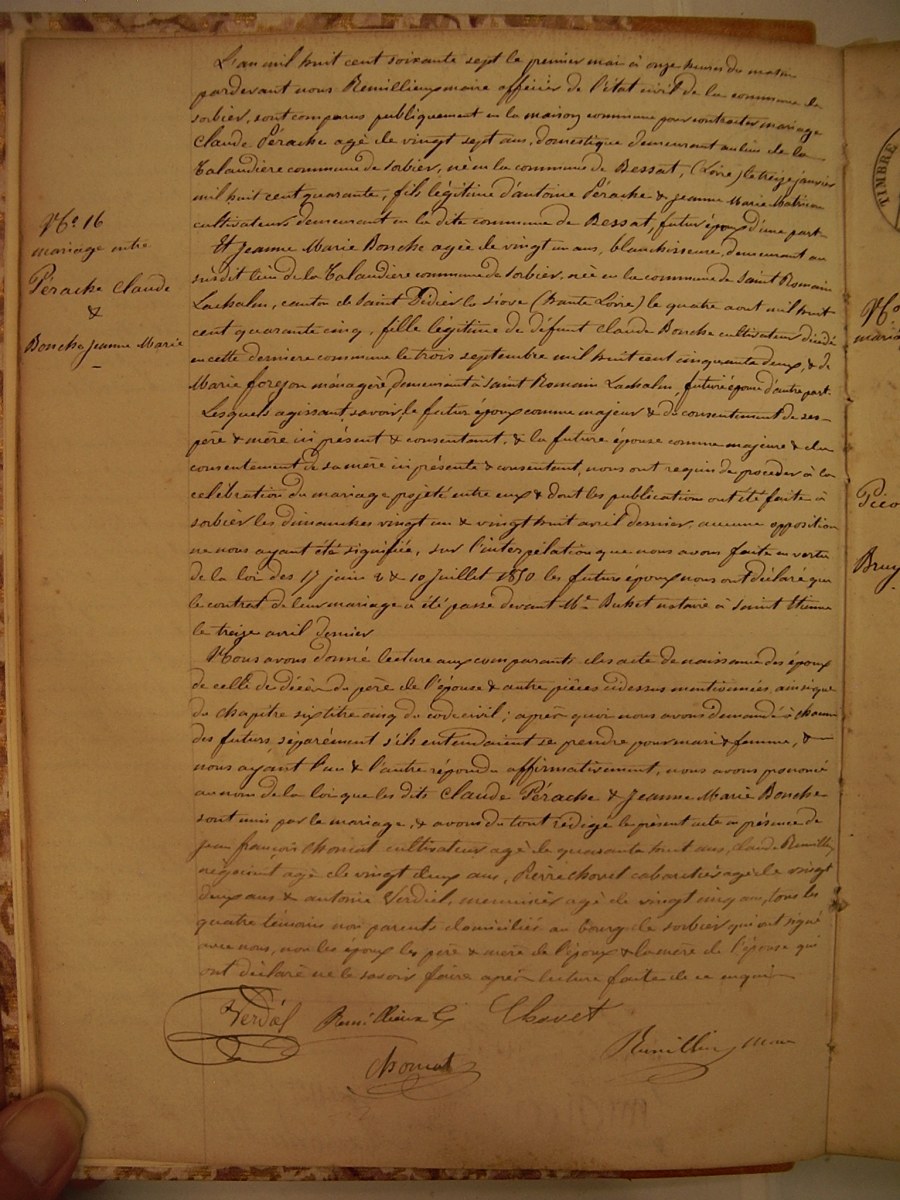 L'an mil huit cent soixante sept le premier mai à onze heures du matin
pardevant nous Remillieux maire officier de l'état civil de la commune de
sorbier, sont comparus publiquement en la maison commune pour contracter mariage
Claude Pérache agé de vingt sept ans, domestique demeurant au lieu de la
Talaudiere commune de sorbier, né en la commune de Bessat, (Loire) le treize janvier
mil huit cent quarante, fils légitime d'antoine Pérache & jeanne Marie
cultivateurs demeurant en la dite commune de Bessat, futur époux d'une part
Et Jeanne Marie Bonche agée de vingt un ans, blanchisseuse, demeurant au
susdit lieu de la Talaudiere commune de sorbier, née en la commune de Saint Romain
Lachalm, canton de Saint Didier la séove (haute Loire) le quatre aout mil huit
cent quarante cinq, fille légitime de défunt Claude Bonche cultivateur décédé
en cette derniere commune le trois septembre mil huit cent cinquante deux, & de
Marie forejon ménagère, demeurant à saint Romain Lachalm, future épouse d'autre part.
Lesquels agissant, savoir, le futur époux comme majeur & du consentement de ses
père & mère ici présent & consentant, & la future épouse comme majeure & du
consentement de sa mère ici présente & consentant, nous ont requis de proceder à la
celébration du mariage projeté entre eux & dont les publication ont été faite à
sorbier les dimanches vingt un & vingt huit avril dernier, aucune opposition
ne nous ayant été signifiée, sur l'interpélation que nous avons faite en vertu
de la loi des 17 juin & 10 Juillet 1850 les futur époux nous ont déclaré que
le contrat de leur mariage a été passé devant Me Buhet notaire à Saint Etienne
le treize avril dernier
Nous avons donné lecture aux comparants des acte de naissance des époux
de celle de décès du père de l'épouse & autre pièces cidessus mentionnées, ainsi que
du chapitre six titre cinq du code civil; après quoi nous avons demandé à chacun
des futurs, séparément s'ils entendaient se prendre pour mari & femme, &
nous ayant l'un & l'autre répondu affirmativement, nous avons prononcé
au nom de la loi que les dits Claude Pérache & Jeanne Marie Bonche
sont unis par le mariage, & avons du tout rédigé le présent acte en présence de
jean françois chomat cultivateur agé de quarante huit ans, claude Remillieux
négociant agé de vingt deux ans, Pierre chovet cabaretier agé de vingt
deux ans & antoine Verdiel, menuisier agé de vingt cinq ans, tous les
quatre témoins non parents domiciliés au bourg de sorbier qui ont signé
avec nous, non les époux les père & mère de l'époux & la mère de l'épouse qui
ont déclaré ne le savoir faire après lecture faite de ce enquis
No 16
mariage entre
Pérache Claude
&
Bonche Jeanne Marie
Verdiel Remillieux C Chovet
Chomat
Remillieux maire
TIMBRE
No
maria
Pico
Bruy